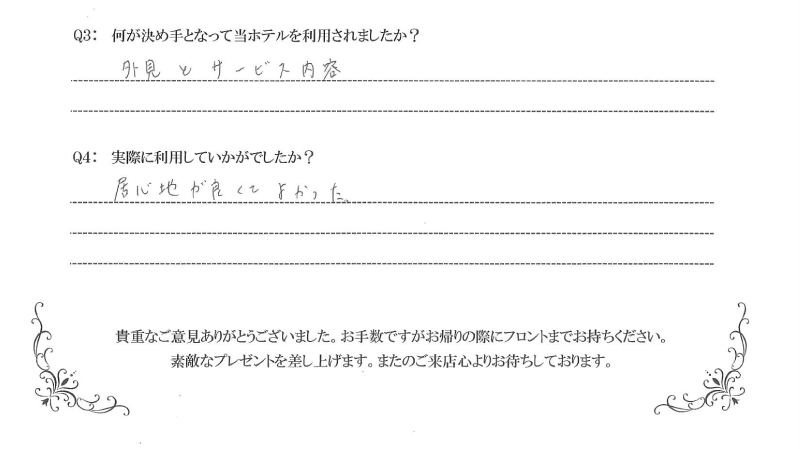 Q3： 何が決め手となって当ホテルを利用されましたか？
外見とサービス内容
Q4： 実際に利用していかがでしたか？
居心地が良くてよかった。
貴重なご意見ありがとうございました。お手数ですがお帰りの際にフロントまでお持ちください。
素敵なプレゼントを差し上げます。またのご来店心よりお待ちしております。